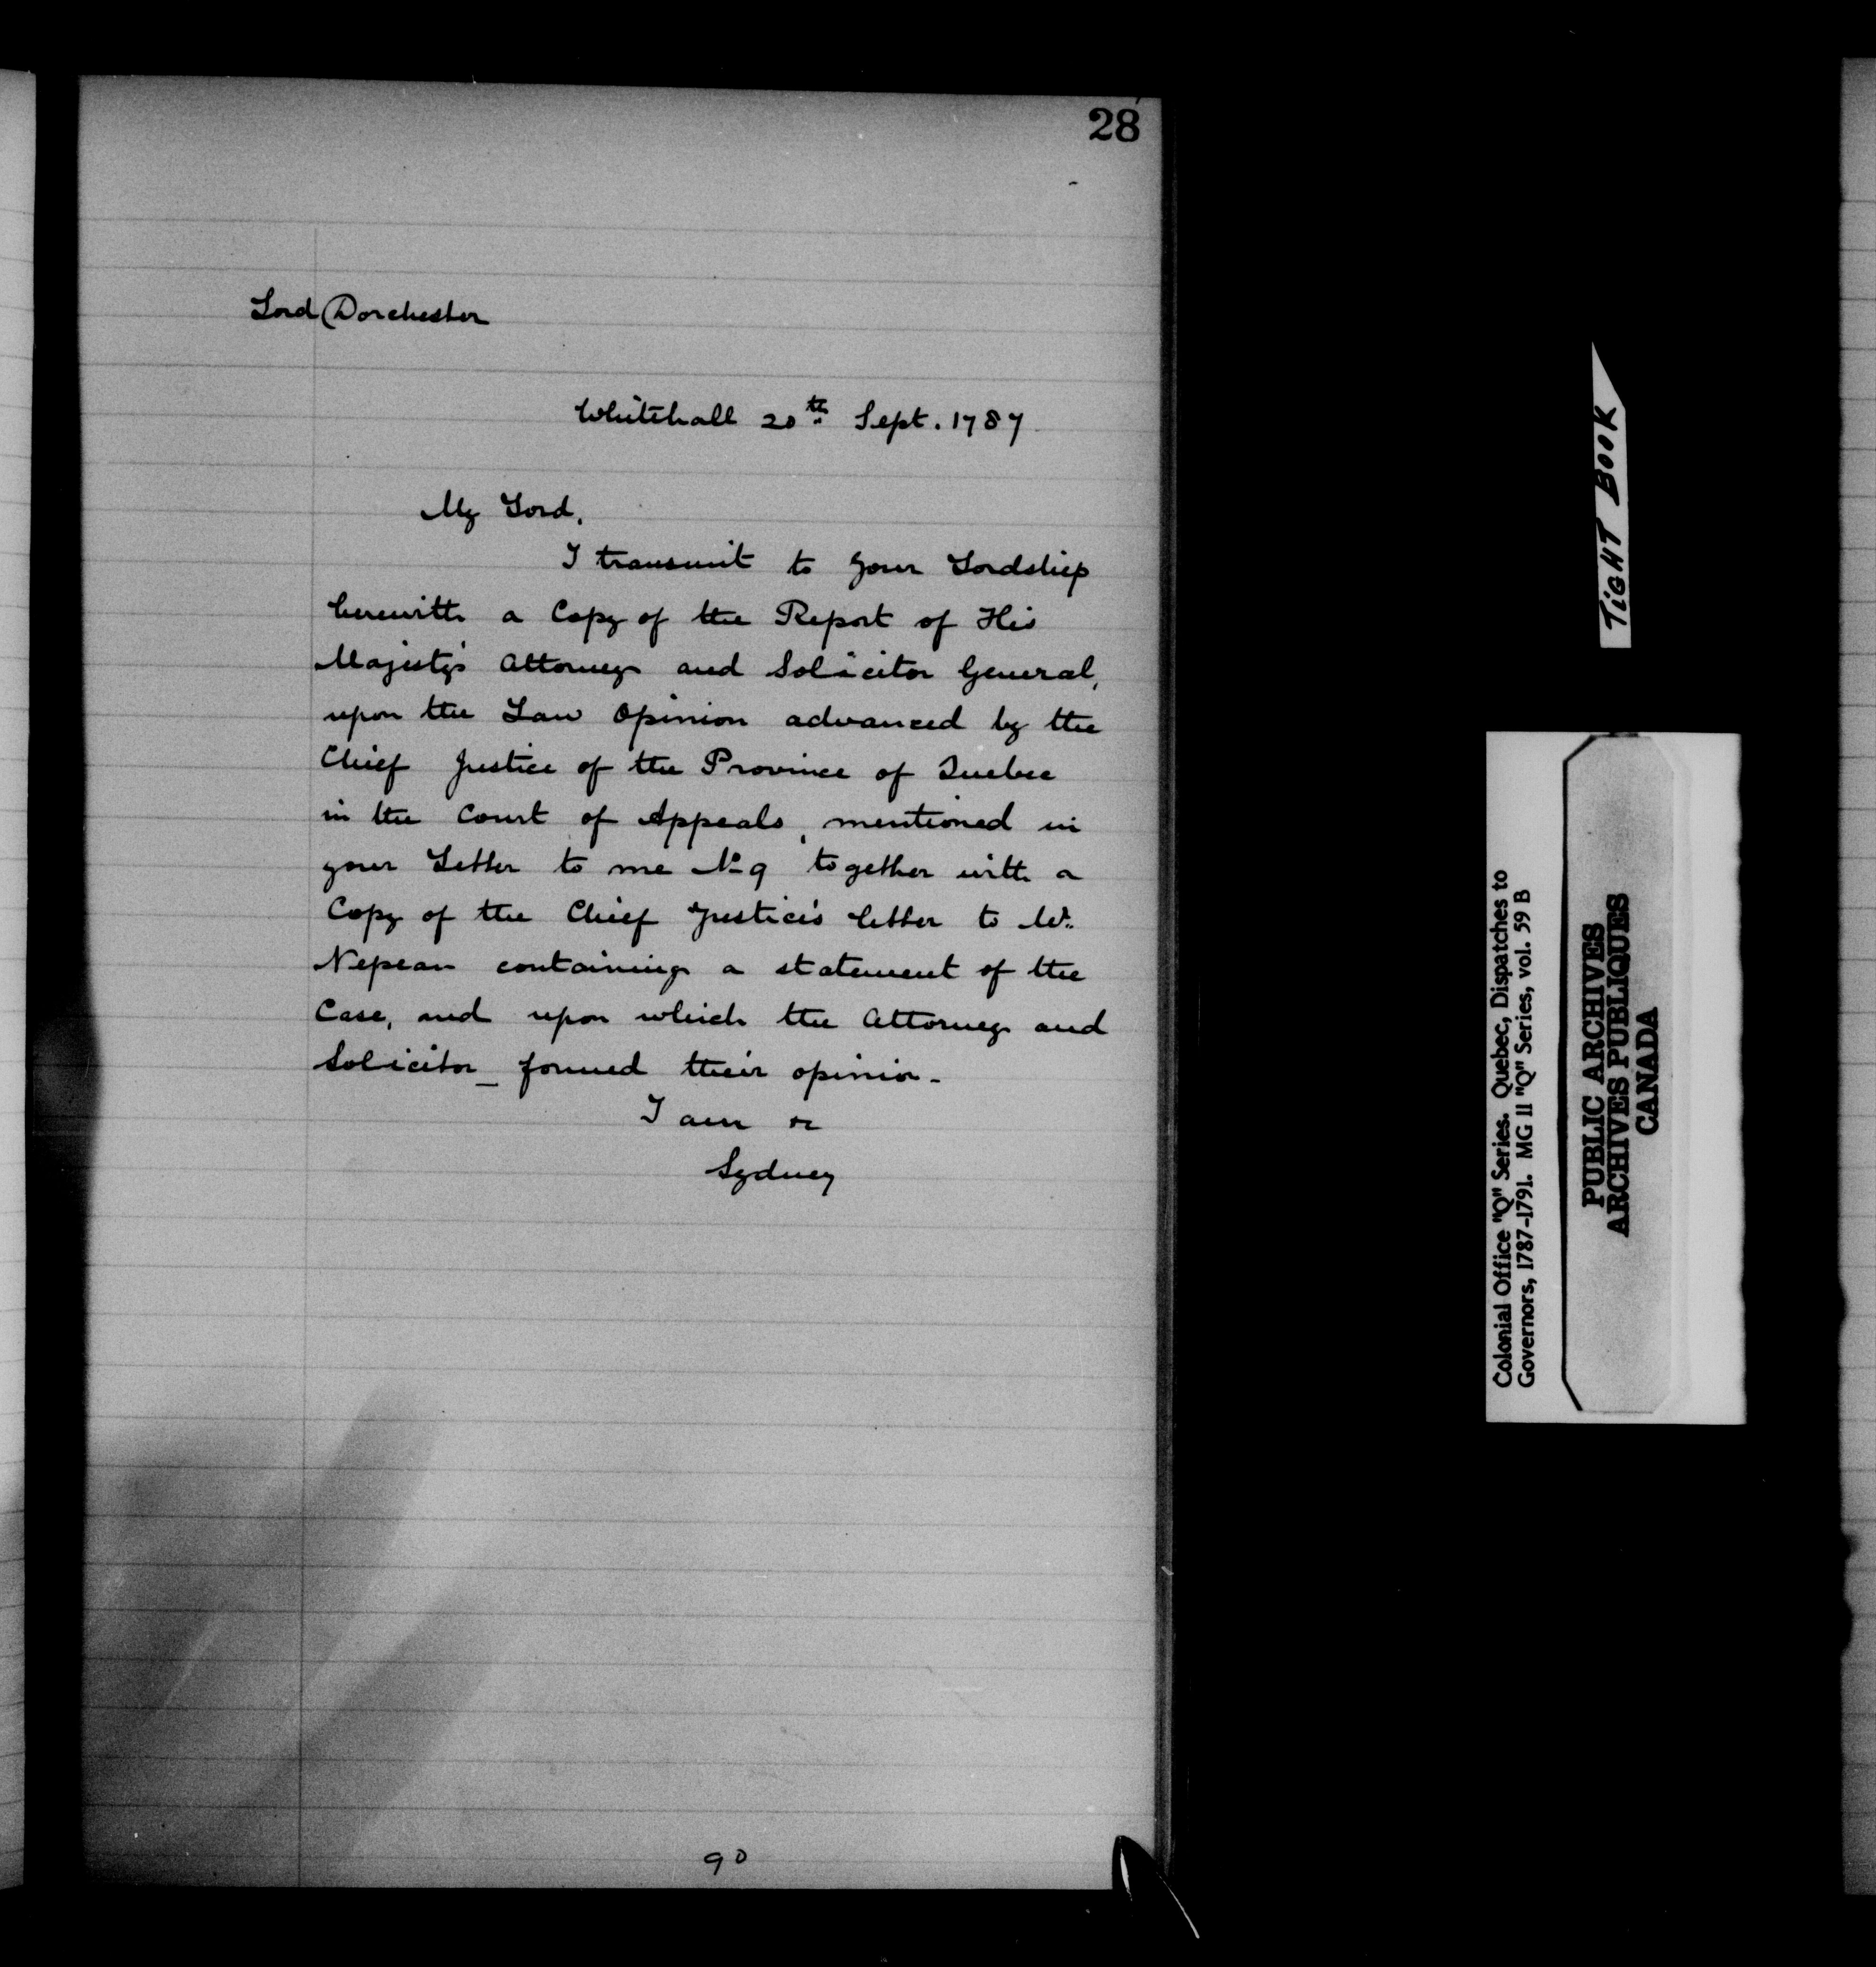 28
Lord Dorchester
Whitehall 20th Sept. 1787
My Lord,
I transmit to your Lordship
herewith a Copy of the Report of His
Majesty's Attorney and Solicitor General,
upon the Law Opinion advanced by the
Chief Justice of the Province of Quebec
in the Court of Appeals, mentioned in
your Letter to me No 9 together with a
Copy of the Chief Justice's letter to Mr.
Nepean containing a statement of the
Case, and upon which the Attorney and
Solicitor _ formed their opinion -
I am &c
Sydney
90
TIGHT BOOK
Colonial Office "Q" Series. Quebec, Dispatches to
Governors, 1787-1791. MG 11 "Q" Series, vol. 59 B
PUBLIC ARCHIVES
ARCHIVES PUBLIQUES
CANADA